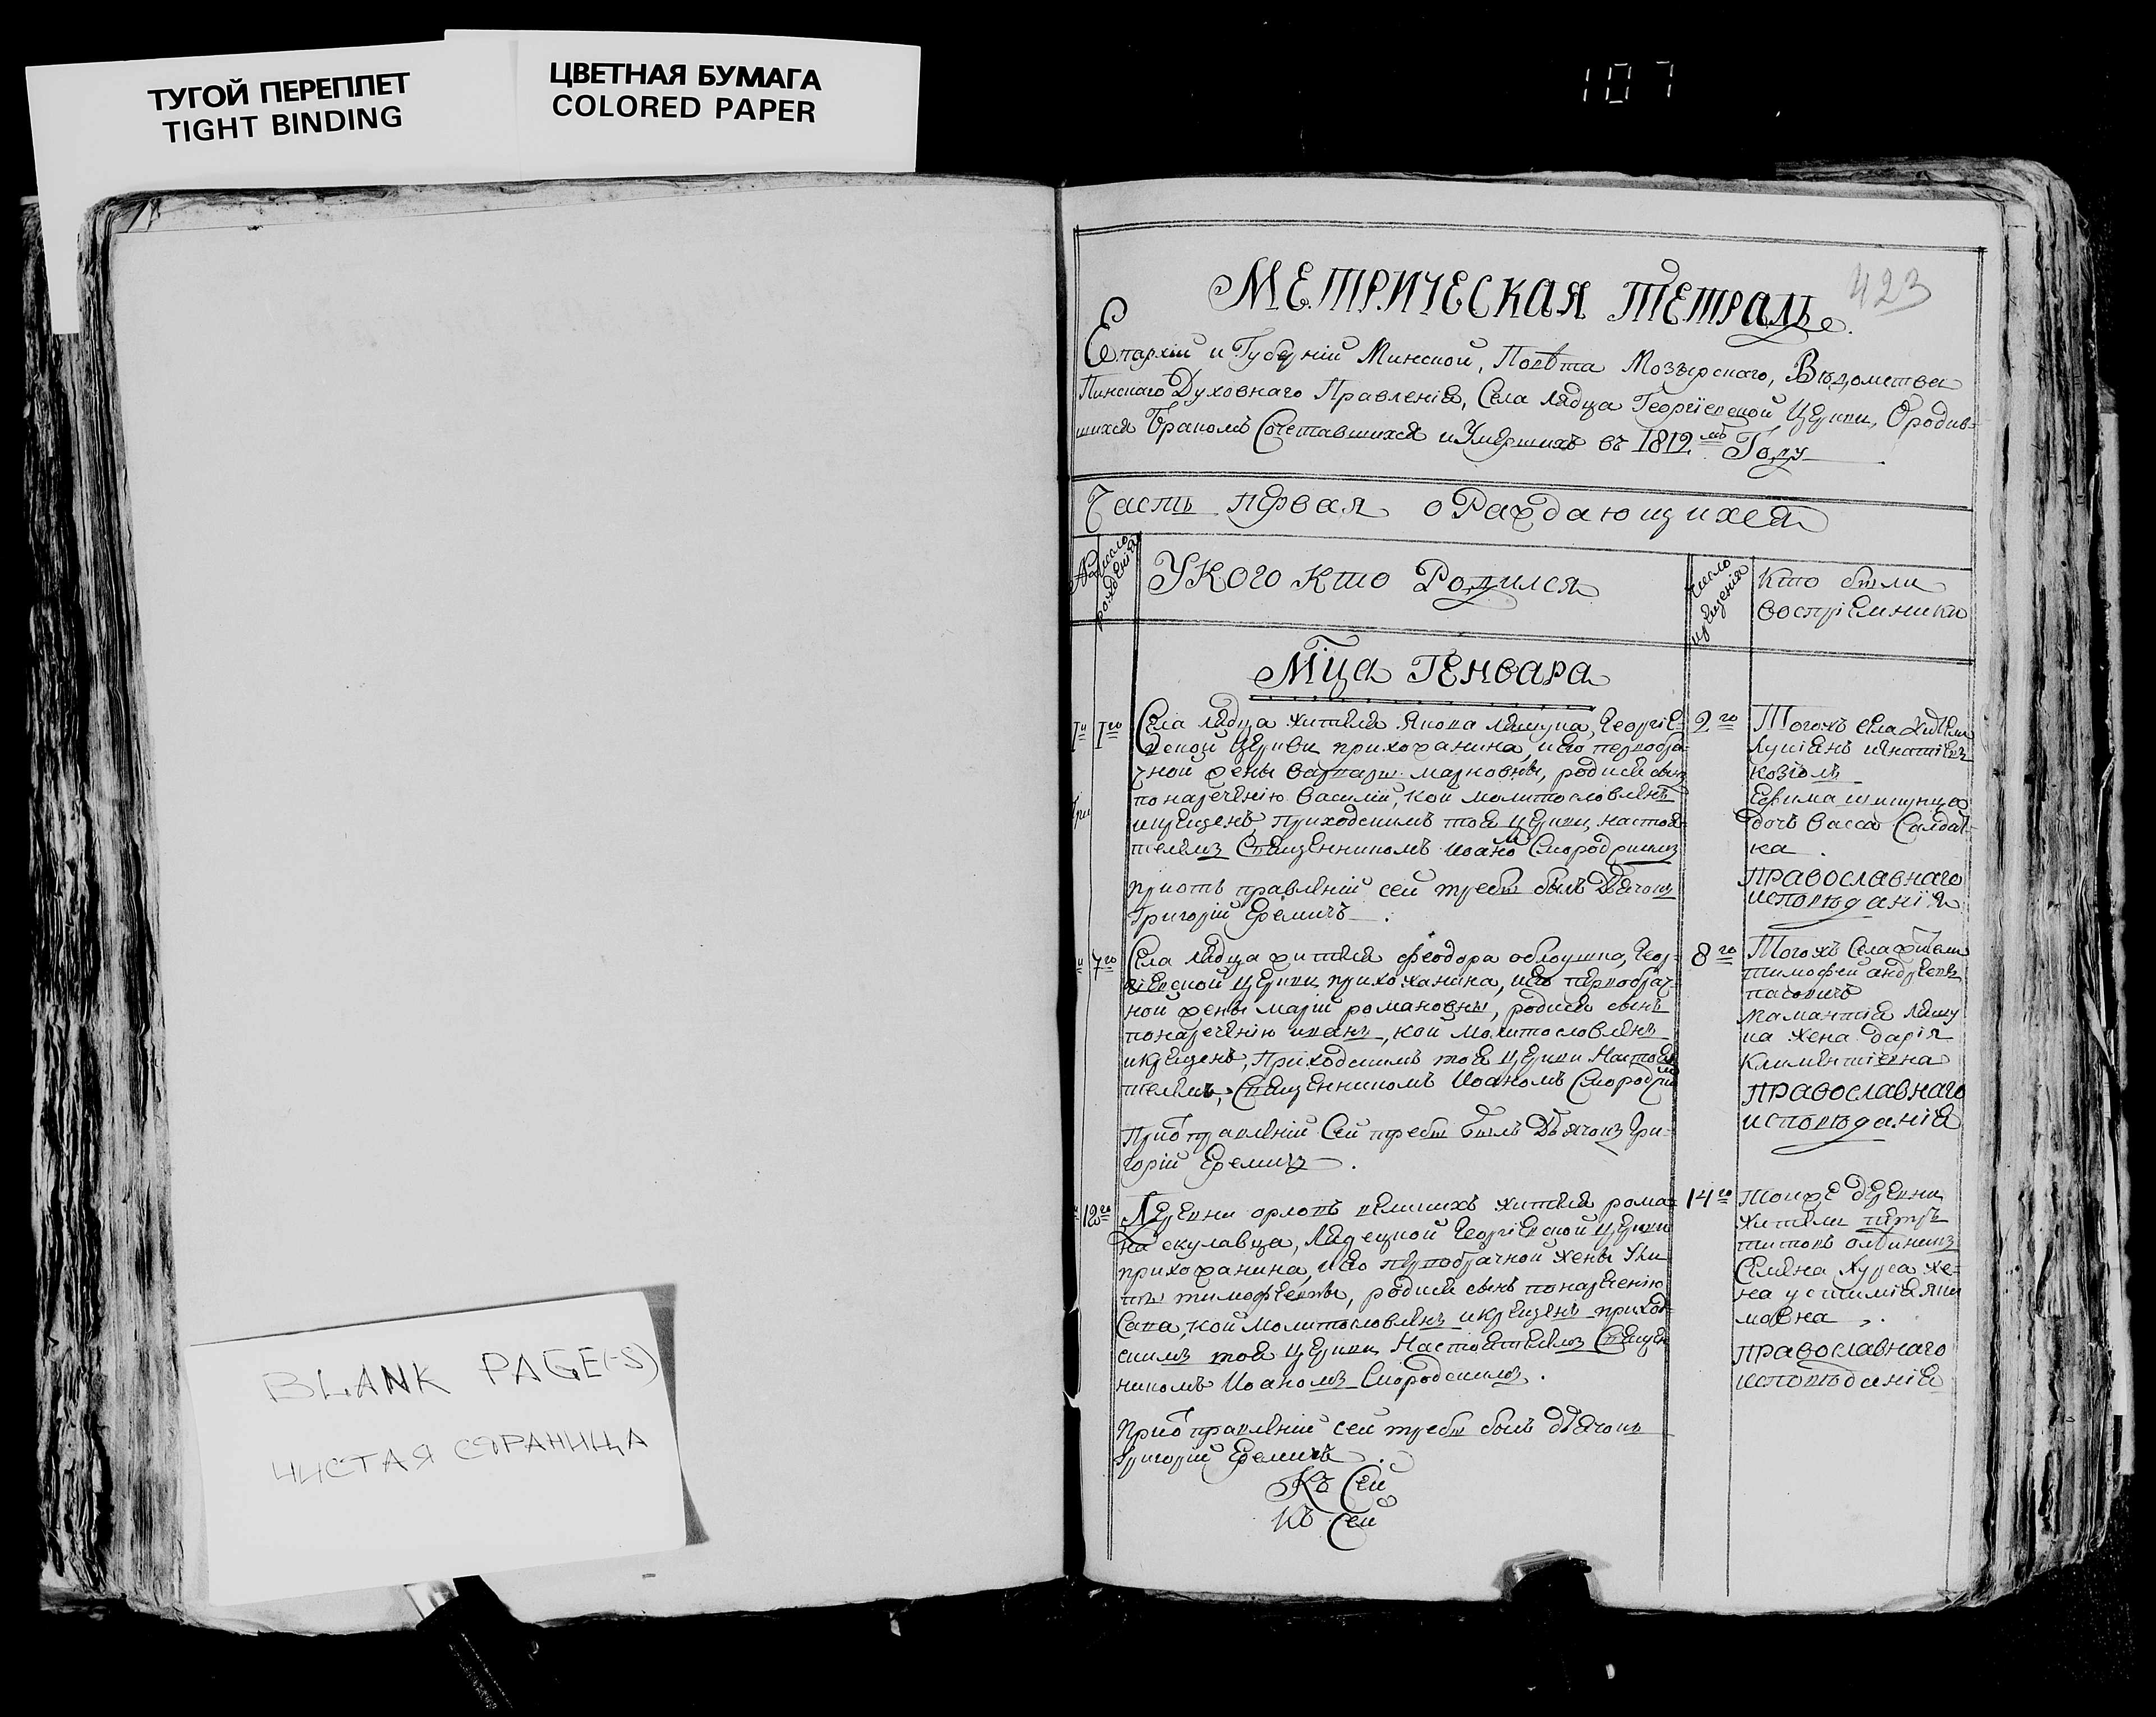 ТУГОЙ ПЕРЕПЛЕТ
TIGHT BINDING
ЦВЕТНАЯ БУМАГА
COLORED PAPER
107
423
МЕТРИЧЕСКАЯ ТЕТРАДЬ.
Епархіи и Губерніи Минской, Повѣта Мозырскаго, Вѣдомства
Пинскаго Духовнаго Правленія, Села Лядца Георгіевской Церкви, О родив-
шихся Бракомъ Сочетавшихся и Умершихъ въ 1812мъ Году
Часть первая о Раждающихся
№
число рожденія
У кого кто Родился
число крещенія
Кто были
воспріемники
Мца Генвара
1й
1го
Села Лядца жителя Якова Ляшука, Георгіе-
вской Церкви прихожанина, и его первобра-
чной жены Варвары Марковны, родися сынъ
по нареченію Василій, кой молитвословленъ
и крещенъ, Приходскимъ тоя церкви, настоя-
телемъ Священникомъ Иоаномъ Смородскимъ
при отправленіи сей требы былъ Дьячокъ
Григорій Еремичъ.
2го
Тогожъ села жители
козіолъ
дочъ Васса Салдат-
ка.
Православнаго
исповѣданія
7го
Села Лядца жителя Феодора Облоушка, Геор-
гіевской церкви прихожанина, и его первобрач-
ной жены Маріи Романовны, родися сынъ
по нареченію Иванъ, кой молитвословленъ
и крещенъ, Приходскимъ тоя церкви Настоя-
телемъ, Священникомъ Иоаномъ Смородским
При отправленіи Сей требы былъ Дьячокъ Гри-
горій Еремичъ.
8го
Тогожъ Села жители
Тимофей Андреевъ
Ляшу
ка жена Дарія
Климентіевна
Православнаго
исповѣданія
12го
Деревни Орловъ Великихъ жителя Рома-
на Скулавца, Лядецкой Георгіевской Церкви
прихожанина, и его первобрачной жены
Тимофеевны, родися сынъ по нареченію
Сава, кой молитвословленъ и крещенъ приход-
скимъ тоя церкви Настоятелемъ Священ
никомъ Иоаномъ Смородскимъ.
При отправленіи сей требы былъ дьячокъ
Григорій Еремичъ.
14го
Тоижъ деревни
жители Петръ
Семена Хурса же-
на Устимія Яки
мовна.
Православнаго
исповѣданія
Къ Сей
Къ Сей
BLANK PAGE(-S)
ЧИСТАЯ СТРАНИЦА